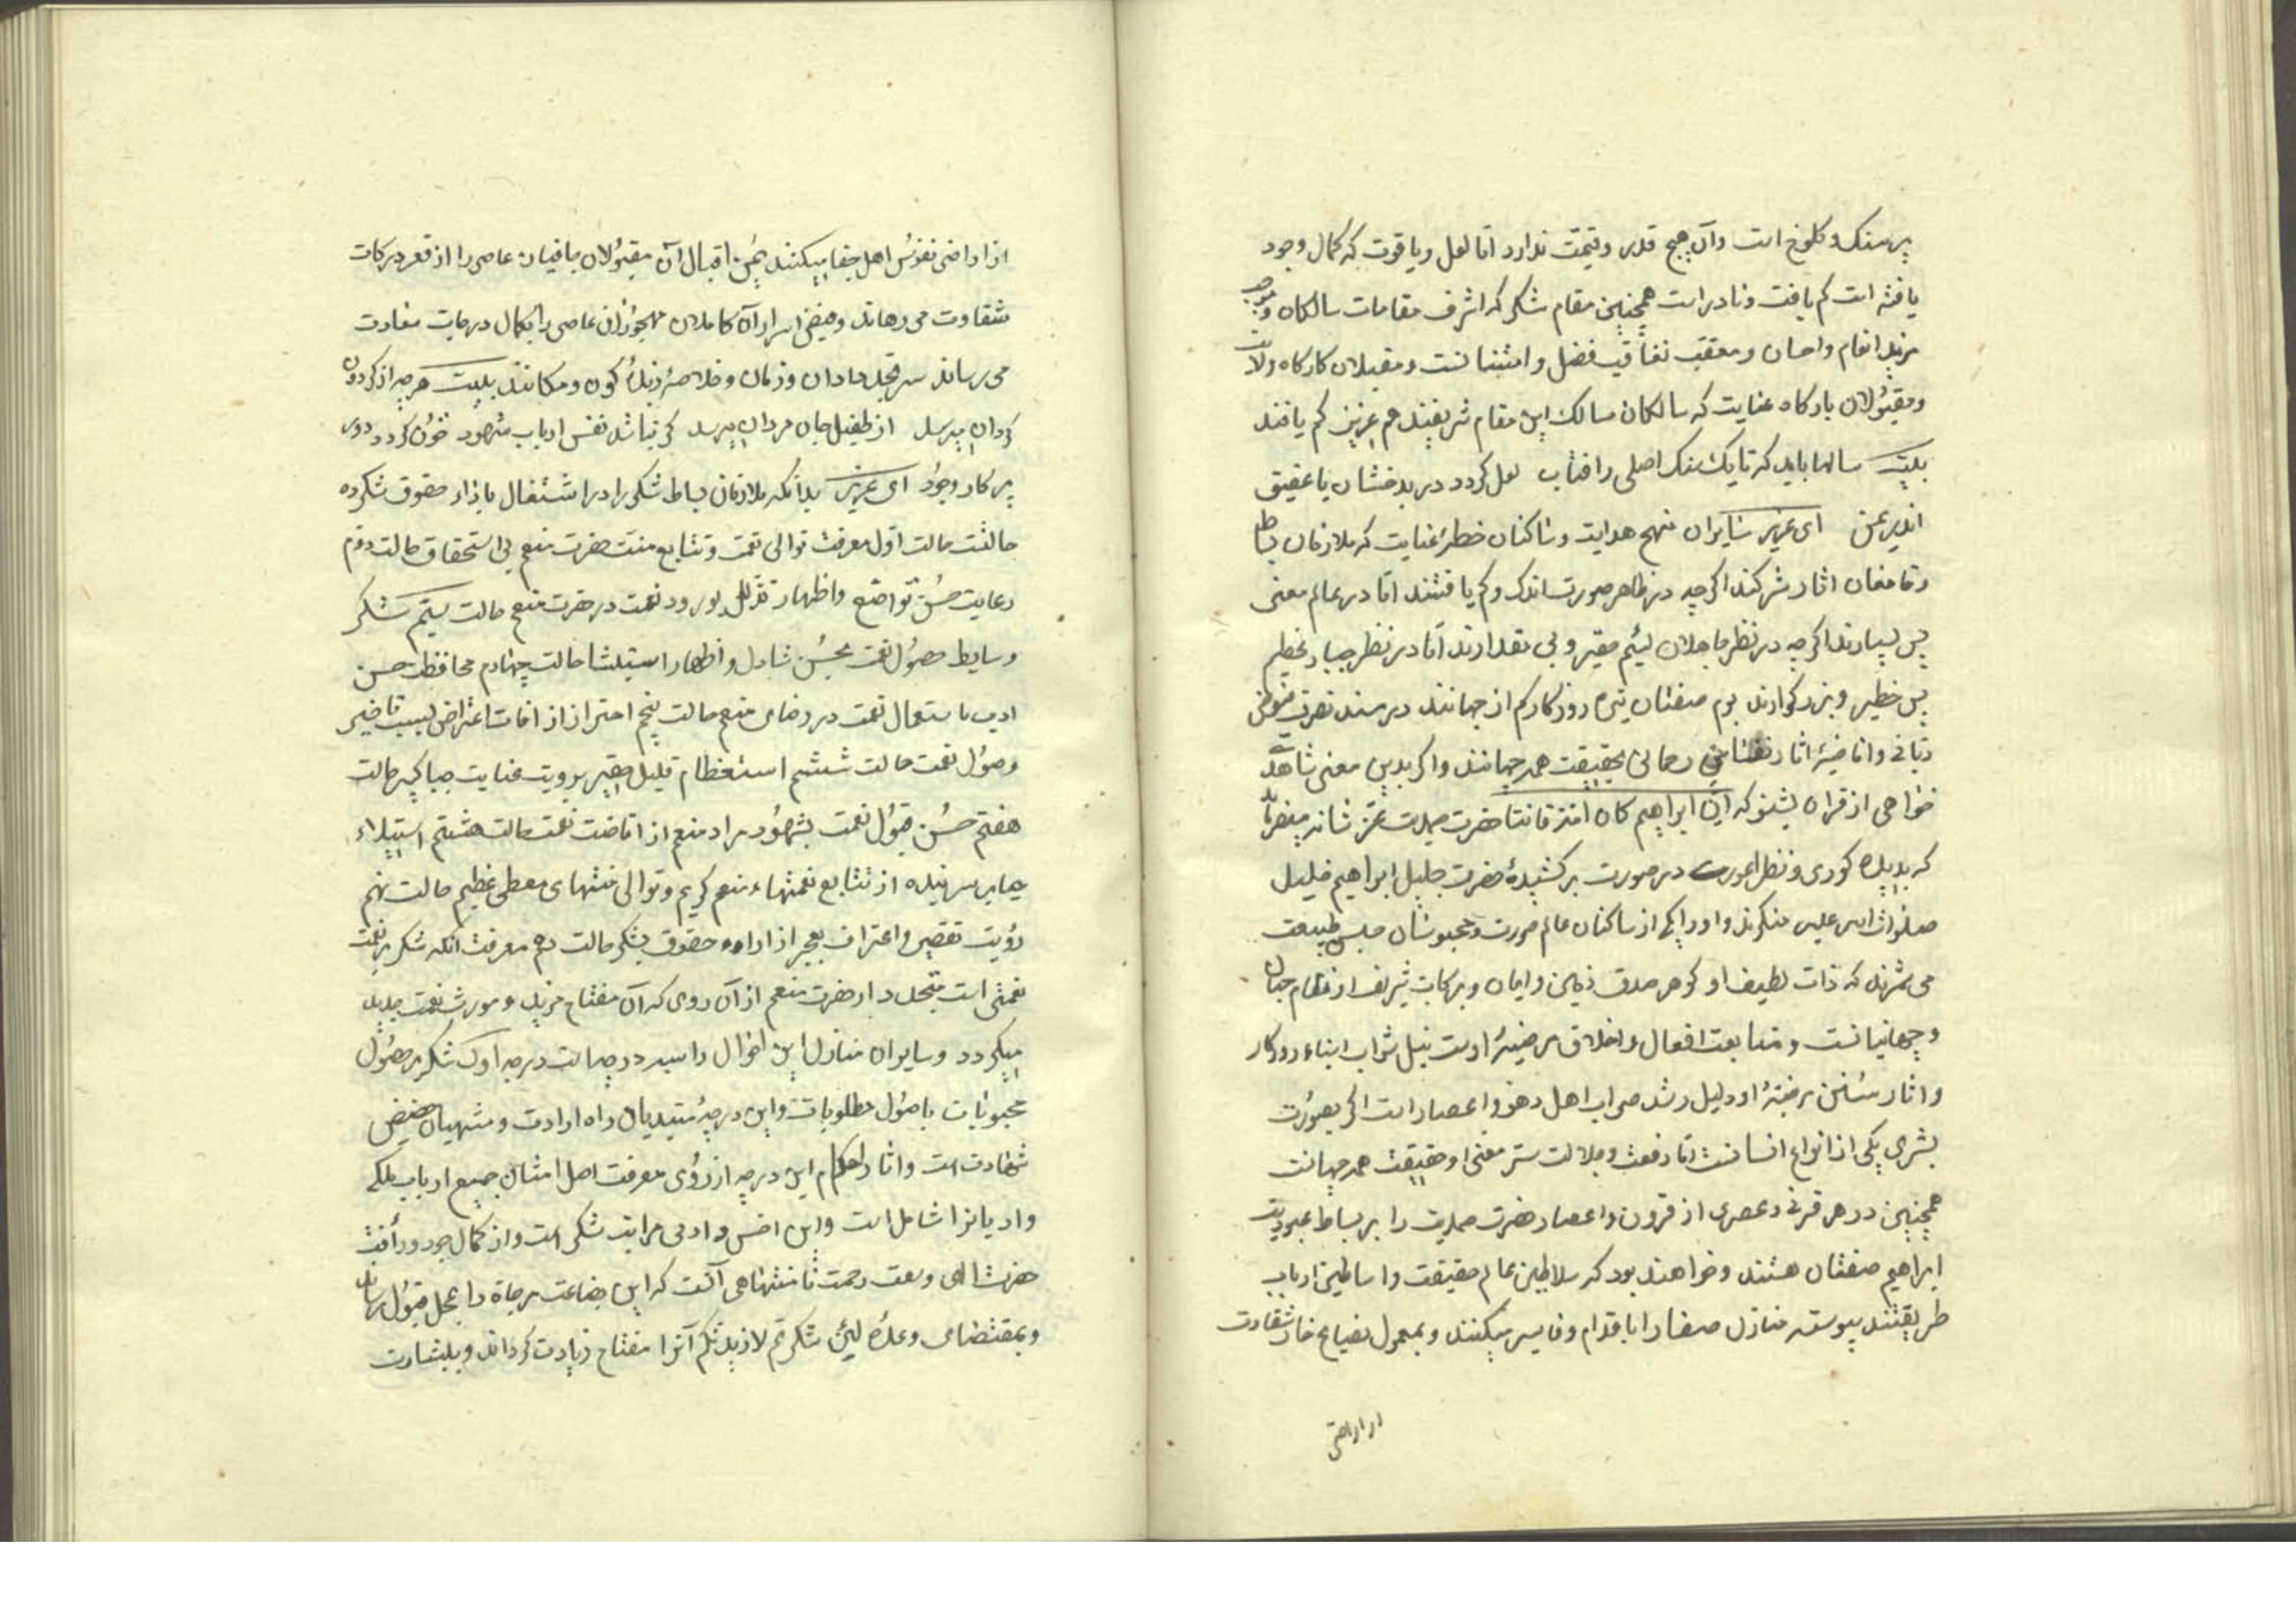 پر سنک و کلوخ است وآن هیچ قدر وقیمت ندارد امّا لعل ویاقوت که کمال وجود
یافته است کم یافت ونادر است همچنین مقام شکر که اشرف مقامات سالکان وموجب
مزید انعام واحسان ومعقب فضل وامتنانست ومقبلان کارکاه ولایت
ومقبولان بارکاه عنایت که سالکان مسالک این مقام شریفند هم عزیز کم یافتند
بیت سالها باید که تا یک سنک اصلی ز افتاب لعل کردد در بدخشان یا عقیق
اندر یمن ای عزیز سایران منهج هدایت وساکنان خطهٔ عنایت که ملازمان بساط
اثار شکرند اکر چه در ظاهر صورت اندک وکم یافتند امّا در عالم معنی
بس بسیارند اکر چه در نظر جاهلان لیئم حقیر و بی مقدارند امّا در نظر جبار عظیم
بس خطیر وبزرکوارند بوم صفتان تیره روزکار کم از جهانند در مسند تصرت
ربّانی وافاضهٔ اثار رحمانی بحقیقت همه جهانند واکر بدین معنی شاهد
خواهی از قران بشنو که انّ ابراهیم کان امّة قانتا حضرت صمدیت عزّ شانه میفرماید
که بدیدهٔ کوری ونظر اعوری در صورت برکشیدهٔ حضرت جلیل ابراهیم خلیل
صلوات الله علیه منکرید واو را یکی از ساکنان عالم صورت ومحبوسان حبس طبیعت
می شمرید که ذات لطیف او کوهر صدف زمین وزمان وبرکات شریف او نظام جهان
وجهانیانست ومتابعت افعال واخلاق مرضیهٔ اوست نیل ثواب ابناء روزکار
واثار سُنن مرضیّهٔ او دلیل رشد صواب اهل دهور واعصار است اکر بصورت
بشری یکی از انواع انسانست امّا رفعت وجلالت ستر معنی او حقیقت همه جهانست
همچنین در هر قرنی وعصری از قرون واعصار حضرت صمدیت را بر بساط عبودیت
ابراهیم صفتان هستند وخواهند بود که سلاطین عالم حقیقت واساطین ارباب
طریقتند پیوسته منازل صفا را باقدام وفا سیر میکنند وبمعول نصایح خار شقاوت
از اراضی
از اراضی نفوس اهل جفا میکنند یمن اقبال آن مقبولان باقیان عاصی را از قعر درکات
شقاوت می رهاند وفیض اسرار آن کاملان مهجوران عاصی را بکمال درجات سعادت
می رساند سر دوران وزمان وخلاصهٔ زبدهٔ کون ومکانند بیت هر چه از کردون
کردان میرسد از طفیل جان مردان میرسد کر نباشد نفس ارباب شهود خون کردد دوی
پرکار وجود ای عزیز بدانکه ملازمان بساط شکر را در اشتغال باداء حقوق شکر ده
حالتست حالت اول معرفت توالی نعمت وتتابع منت حضرت منعم بی استحقاق حالت دوّم
رعایت حُسن تواضع واظهار تذلّل بورود نعمت در حضرت منعم حالت سیّم شکر
وسایط حصول نعمت بحسن واظهار حالت چهارم محافظت حسن
ادب باستعمال نعمت در رضای منعم حالت پنجم احتراز از افات اعتراض بسبب تاخیر
وصول نعمت حالت ششم استعظام قلیل حقیر برویت عنایت حالت
هفتم حُسن قبول نعمت بشهود مراد منعم از افاضت نعمت حالت هشتم استیلاء
حیا بر سر بنده از تتابع نعمتهاء منعم کریم وتوالی منتهای معطی عظیم حالت نهم
رؤیت تقصیر واعتراف بعجز از اداء حقوق شکر حالت دهم معرفت انکه شکر بر نعمت
نعمتی است متجدد از حضرت منعم از آن روی که آن مفتاح مزید ومورث نعمت جدید
میکردد وسایران منازل این احوال را سه درجه است درجه اول شکر بر حصول
محبوبات با حصول مطلوبات واین درجهٔ مبتدیان راه ارادت ومنتهیان حضیض
شهادت است واثار احکام این درجه از روی معرفت اصل امتنان جمیع ارباب ملل
وادیانرا شامل است واین اخس وادنی مراتب شکر است واز کمال جود ورأفت
حضرت الهی وسعت رحمت نامتناهی آنست که این بضاعت مزجاة را بمحل قبول رساند
وبمقتضای وعدهٔ لئن شکرتم لازیدنّکم آنرا مفتاح زیادت کرداند وببشارت